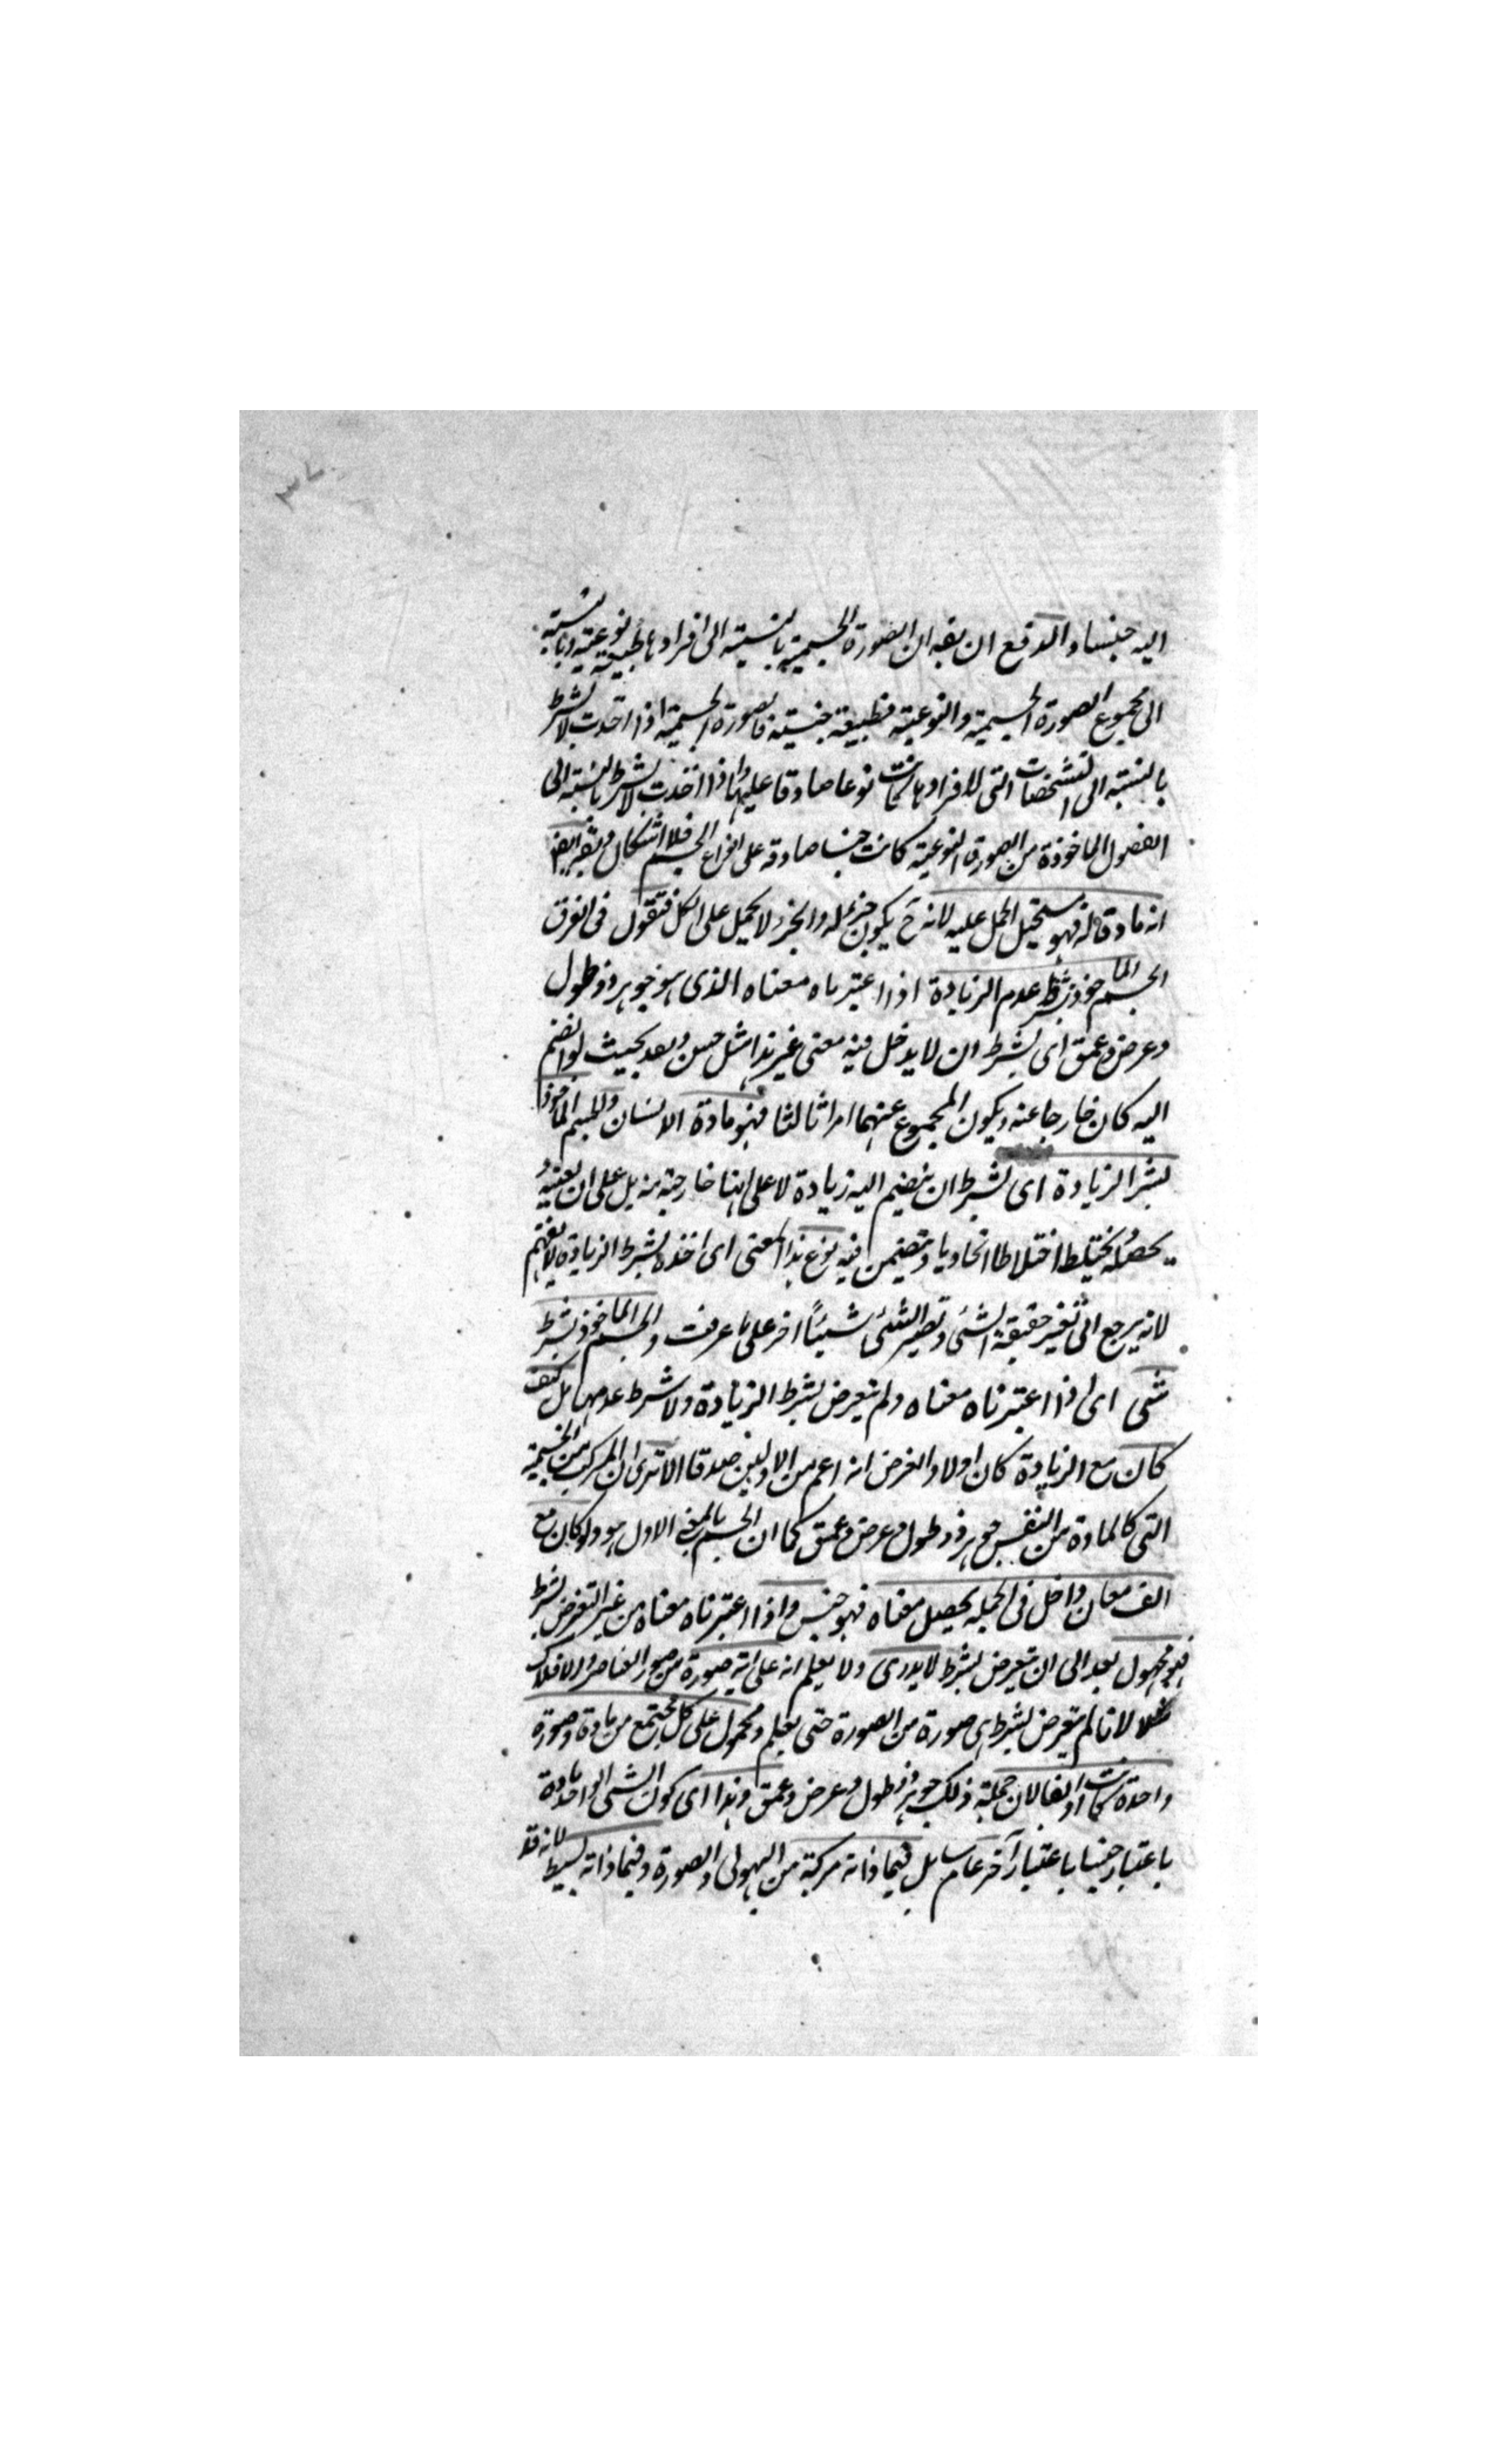 ٣٧
اليه جنسا والدفع ان يقه ان الصورة الجسمية بالنسبة الى افرادها طبيعة نوعية وبالنسبة
الى مجموع الصورة الجسمية والنوعية فطبيعة جنسية فالصورة الجسمية اذا اخذت لا بشرط
بالنسبة الى التشخصات التى لافرادها كانت نوعا صادقا عليها واذا اخذت لا بشرط بالنسبة الى
الفصول الماخوذة من الصورة النوعية كانت جنسا صادقه على انواع الجسم فلا اشكال
انه مادة له فهو مستحيل الحمل عليه لانه ح يكون جزء له والجزء لا يحمل على الكل فنقول فى الفرق
الجسم الماخوذ بشرط عدم الزيادة اذا اعتبرناه معناه الذى هو جوهر ذو طول
وعرض وعمق اى بشرط ان لا يدخل فيه معنى غير هذا مثل حس وبعد بحيث لو انضم
اليه كان خارجا عنه ويكون المجموع عنهما امرا ثالثا فهو مادة الانسان والجسم الماخوذ
بشرط الزيادة اى بشرط ان ينضم اليه زيادة لا على انها خارجة منه بل على ان
يحصله يختلط اختلاطا اتحاديا ويتضمن فيه نوع هذا المعنى اى اخذه بشرط الزيادة لا يفهم
لانه يرجع الى تغير حقيقة الشئ وتصير الشئ شيئًا اخر على ما عرفت والجسم الماخوذ بشرط
شى اى اذا اعتبرناه معناه ولم يتعرض بشرط الزيادة ولا شرط عدمها بل كيف
كان مع الزيادة كان اولا والغرض انه اعم من الاولين صدقا الا ترى ان المركب من الجسمية
التى كالمادة من النفس جوهر ذو طول وعرض وعمق كما ان الجسم بالمعنى الاول هو ولو كان مع
الف معان داخل فى الجملة يحصل معناه فهو جنس واذا اعتبرناه معناه من غير التعرض بشرط
فهو مجهول بعد الى ان يتعرض بشرط لا يدرى ولا يعلم انه على اية صورة من صور العناصر والافلاك
مثلا لانا لم يتعرض بشرط اى صورة من الصورة حتى يعلم ومحمول على كل مجتمع من مادة وصورة
واحدة كانت او الفا لان جملة ذلك جوهر ذو طول وعرض وعمق وهذا اى كون الشى الواحد مادة
باعتبار جنسا باعتبار آخر عام سايل فيما ذاته مركبة من الهيولى والصورة وفيما ذاته بسيط لانه قد